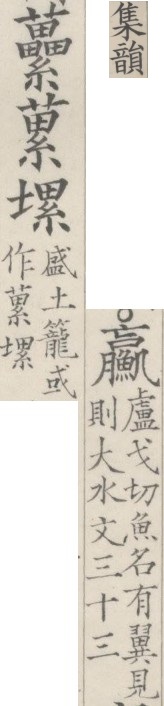 集韻
盧戈切魚名有翼見
則大水文三十三
虆蔂㙼
盛土籠或
作蔂㙼